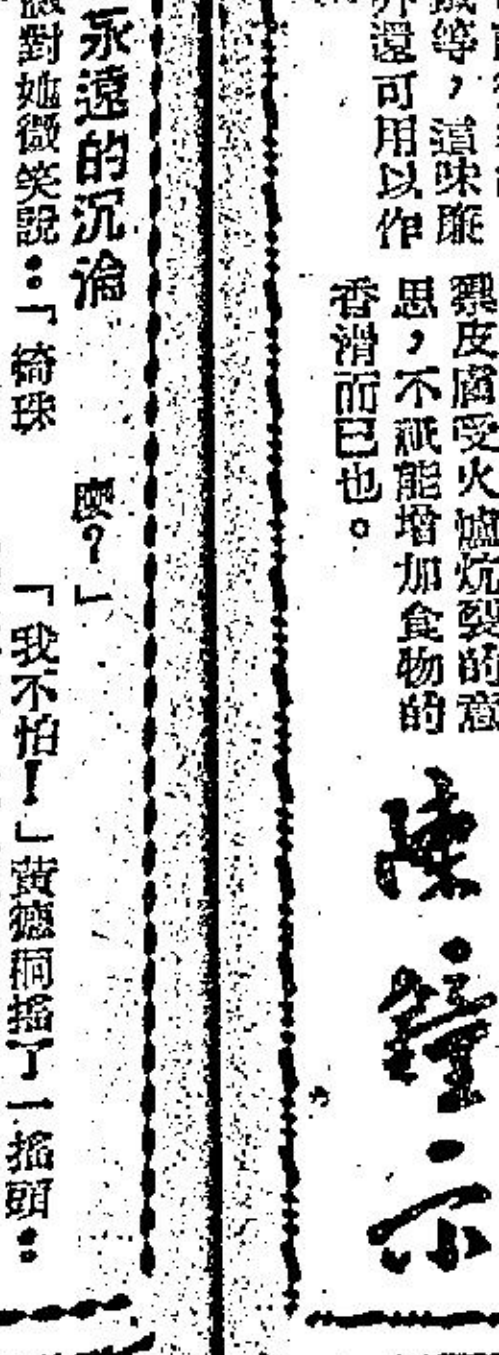 等，這味雖
還可用以作
皮膚受火爐炕裂的意
思，不祇能增加食物的
香滑而已也。
陳·鐘·示
永遠的沉淪
麼？」
對她微笑說：「綺珠
「我不怕！」黃德桐搖了一搖頭：